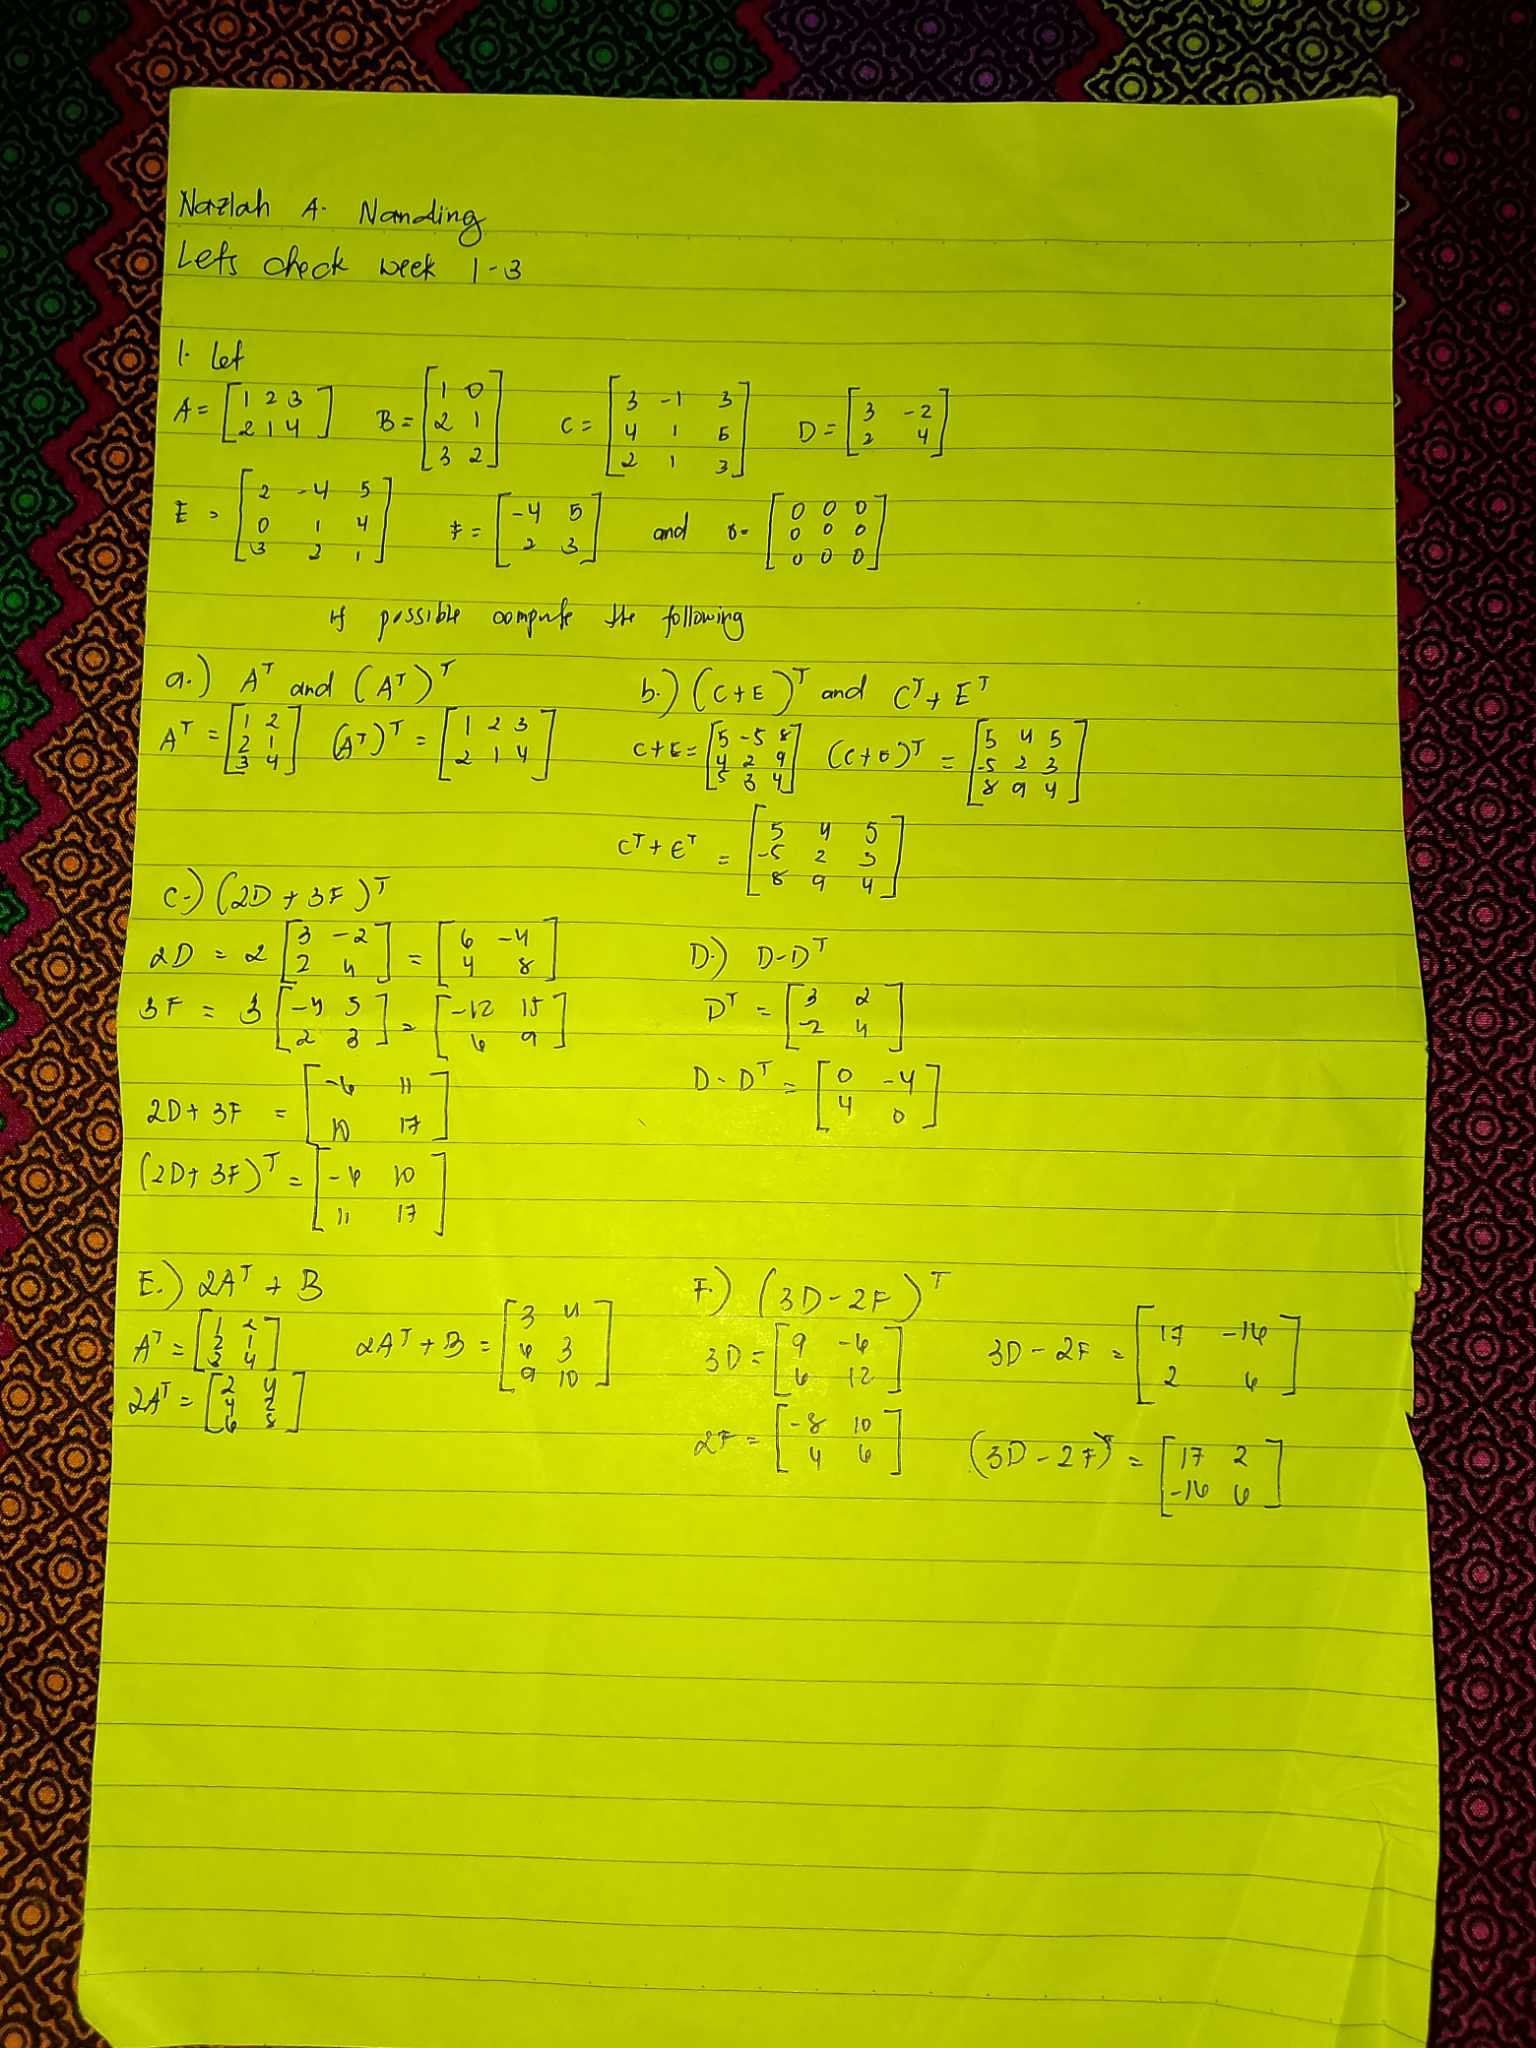 Nazlah A. Nanding
Lets check week 1-3
1. Let
A = [1 2 3; 2 1 4] B = [1 0; 2 1; 3 2] C = [3 -1 3; 4 1 5; 2 1 3] D = [3 -2; 2 4]
E = [2 -4 5; 0 1 4; 3 2 1] F = [-4 5; 2 3] and 0 = [0 0 0; 0 0 0; 0 0 0]
if possible compute the following
a.) Aᵀ and (Aᵀ)ᵀ
Aᵀ = [1 2; 2 1; 3 4] (Aᵀ)ᵀ = [1 2 3; 2 1 4]
b.) (C+E)ᵀ and Cᵀ + Eᵀ
C+E = [5 -5 8; 4 2 9; 5 3 4] (C+E)ᵀ = [5 4 5; -5 2 3; 8 9 4]
Cᵀ + Eᵀ = [5 4 5; -5 2 3; 8 9 4]
C.) (2D + 3F)ᵀ
2D = 2 [3 -2; 2 4] = [6 -4; 4 8]
3F = 3 [-4 5; 2 3] = [-12 15; 6 9]
2D + 3F = [-6 11; 10 17]
(2D + 3F)ᵀ = [-6 10; 11 17]
D.) D-Dᵀ
Dᵀ = [3 2; -2 4]
D - Dᵀ = [0 -4; 4 0]
E.) 2Aᵀ + B
Aᵀ = [1 2; 2 1; 3 4] 2Aᵀ + B = [3 4; 6 3; 9 10]
2Aᵀ = [2 4; 4 2; 6 8]
F.) (3D - 2F)ᵀ
3D = [9 -6; 6 12] 3D - 2F = [17 -16; 2 6]
2F = [-8 10; 4 6] (3D - 2F)ᵀ = [17 2; -16 6]